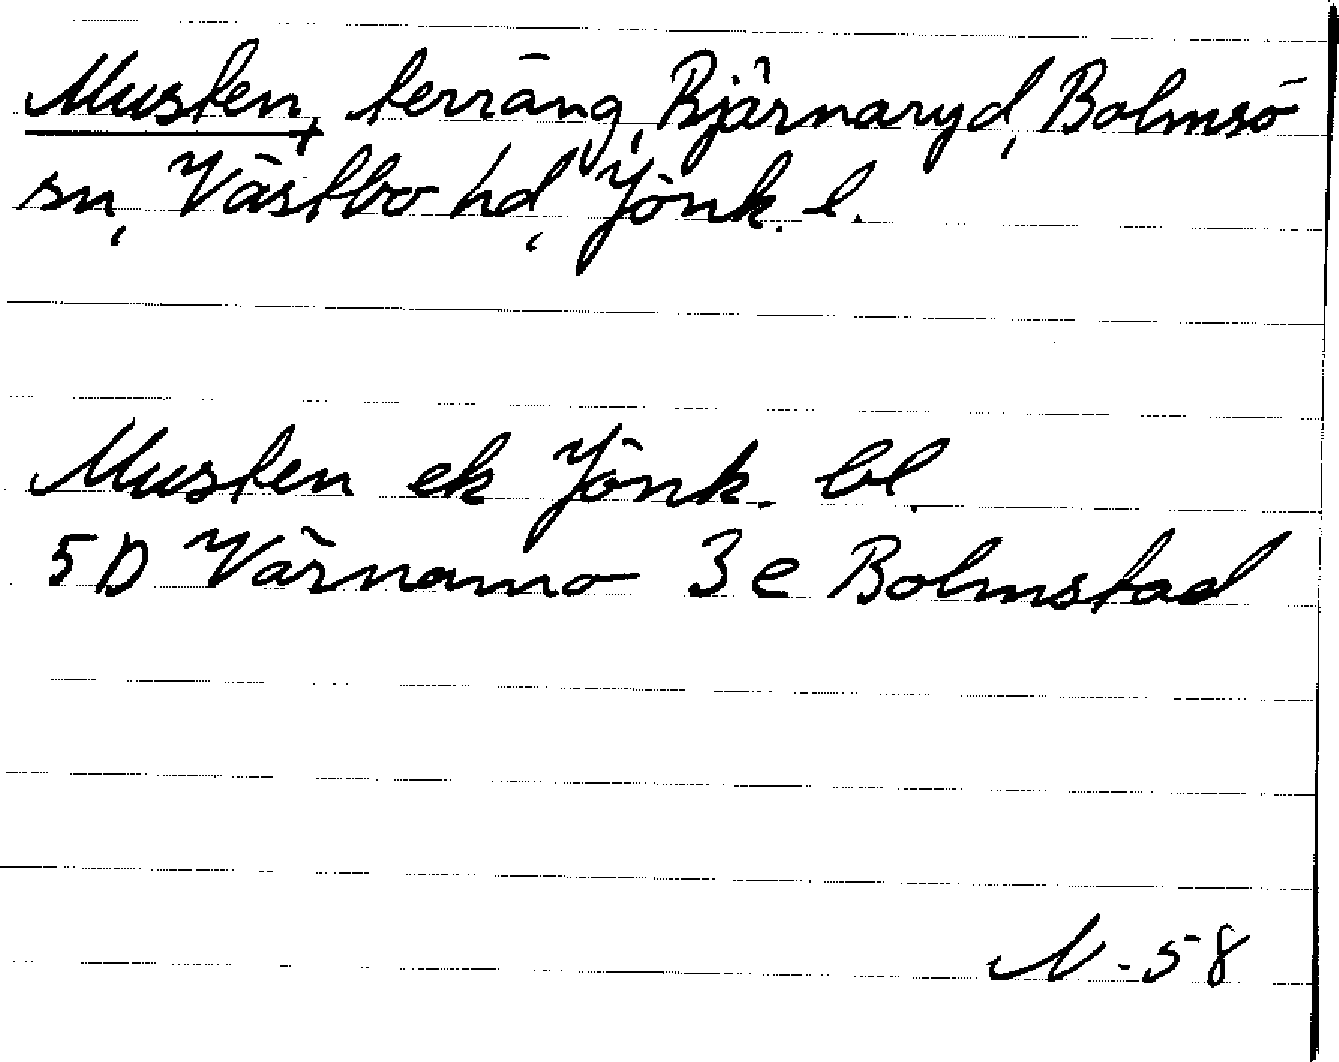 Musten, terräng, Bjärnaryd, Bolmsö
sn, Västbo hd, Jönk. l.
Musten ek Jönk. bl.
5D Värnamo 3e Bolmstad
N-58